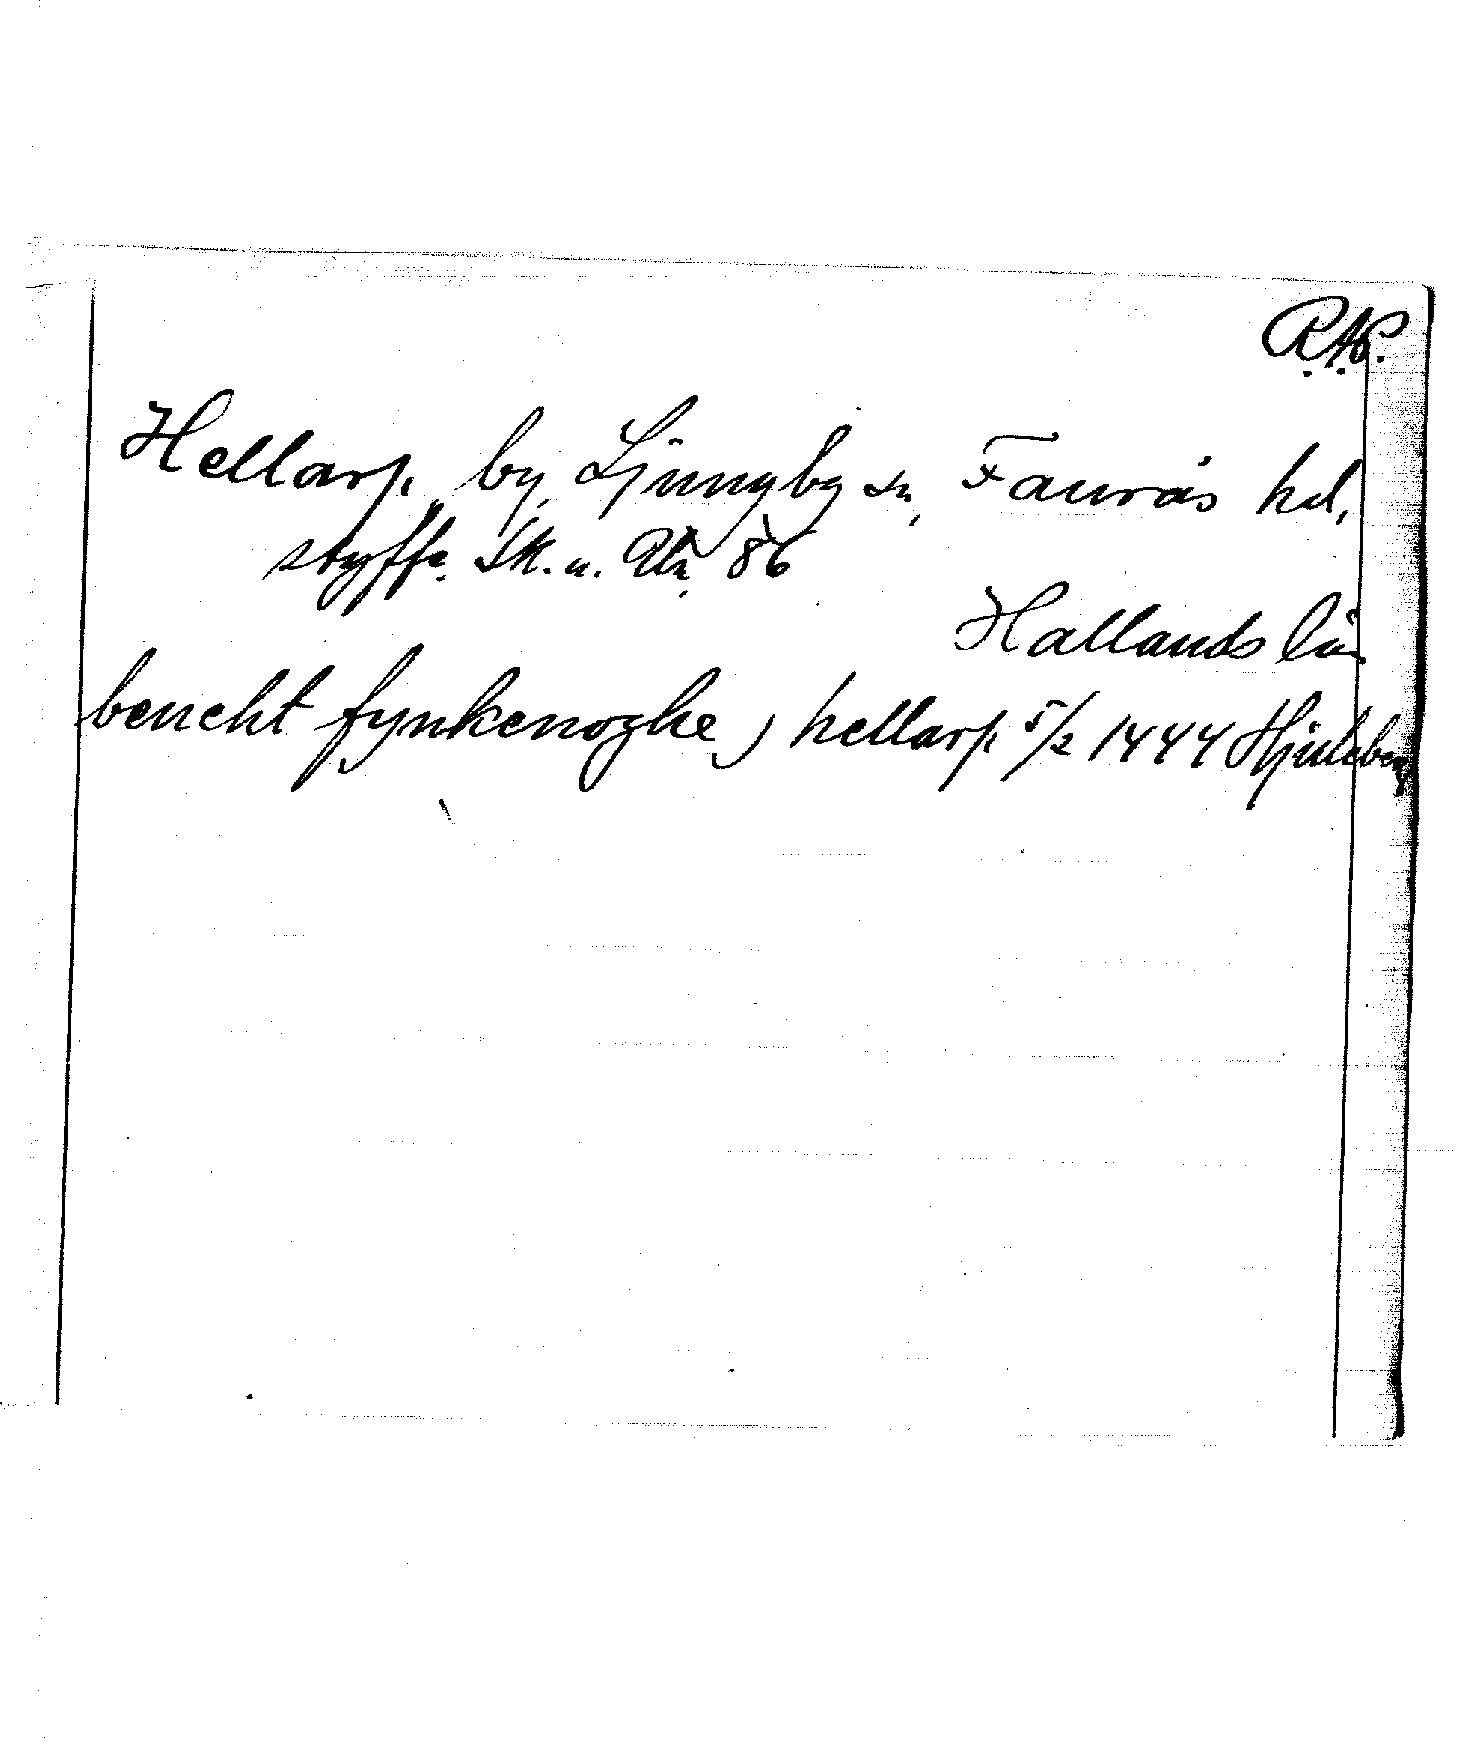 R.A.P.
Hellarp, by, Ljungby sn, Faurås hd,
Styffe. Sk. u. 86
Hallands län
bencht fynkenoghe j hellarp 5/2 1444 Hjuleberg